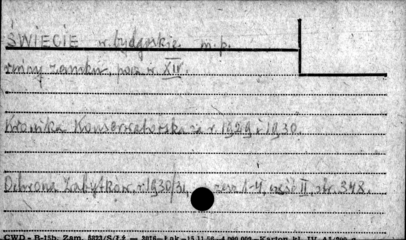 ŚWIECIE w. bydgoskie m. p.
ruiny zamku, pocz. w. XIV.
Kronika Konserwatorska za r. 1929 i 1930.
Ochrona Zabytków, r. 1930/31, zesz. 1-4, część II, str. 348.